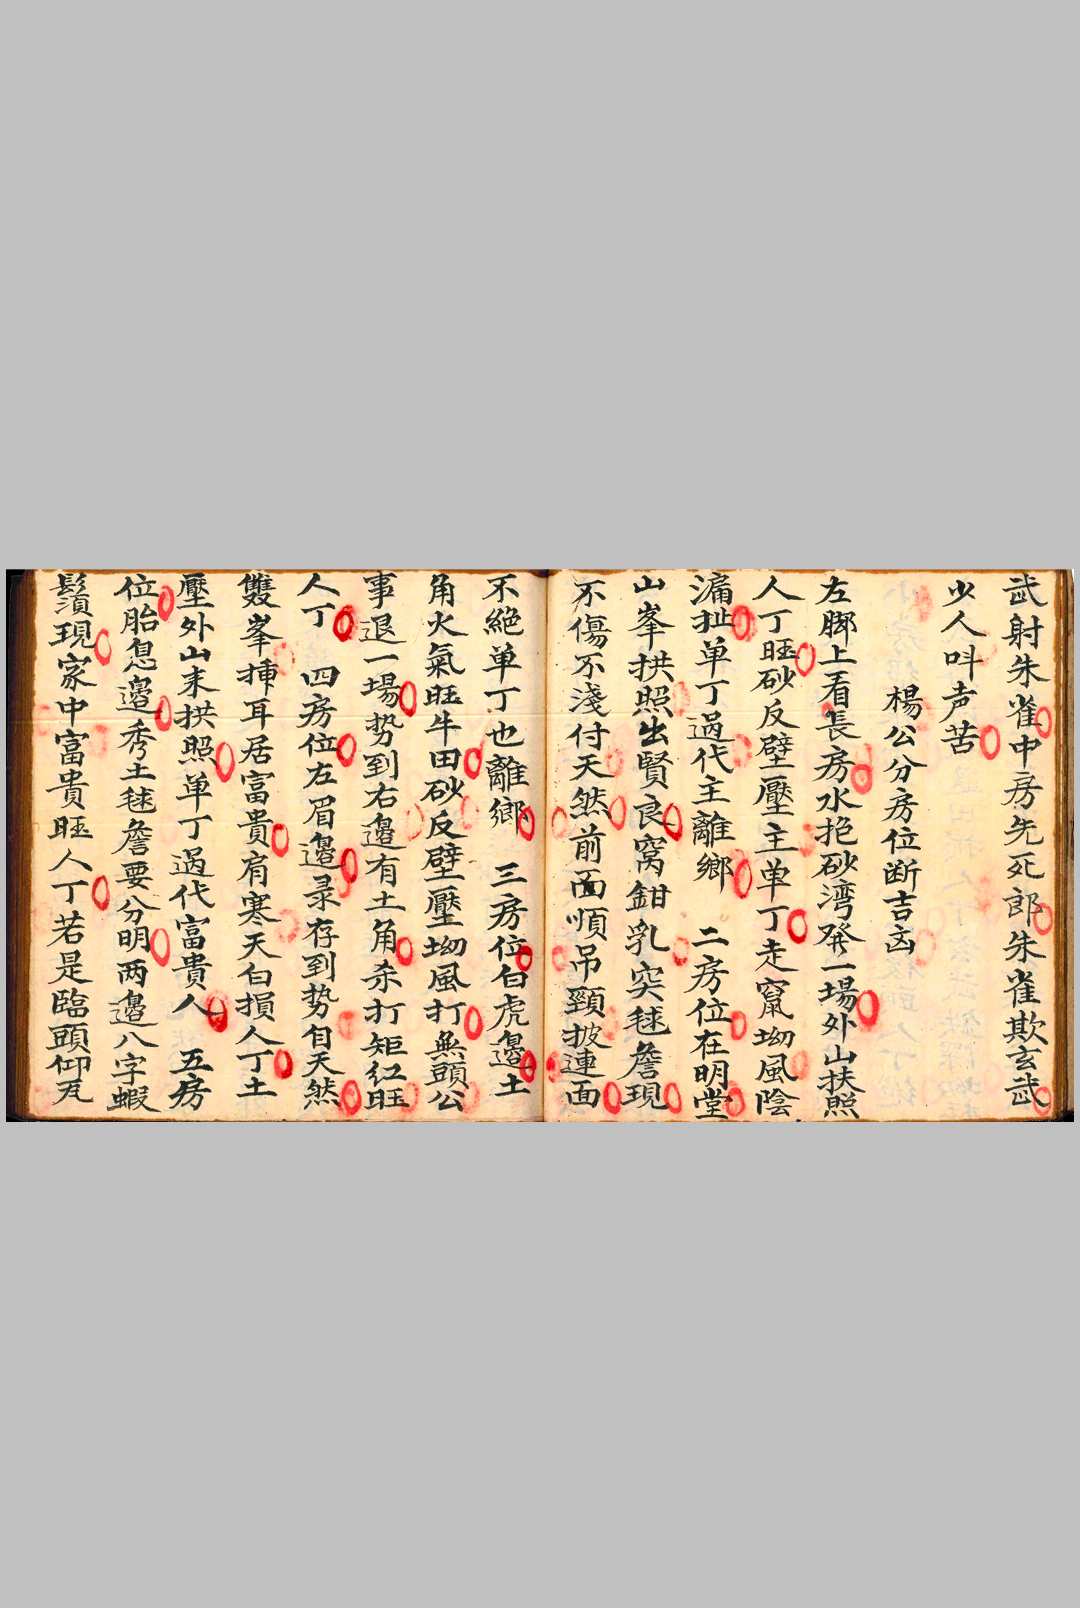 武射朱雀中房先死郎朱雀欺玄武
少人呌声苦
楊公分房位断吉凶
左脚上看長房水抱砂湾發一塲外山扶照
人丁旺砂反壁壓主单丁走竄坳風陰
漏扯单丁過代主離鄉　二房位在明堂
山峯拱照出賢良窩鉗乳突毬簷現
不傷不淺付天然前面順吊頸披連面
不絕单丁也離鄉　三房位白虎邉土
角火氣旺牛田砂反壁壓坳風打無頭公
事退一塲势到右邉有土角杀打矩红旺
人丁　四房位左眉邉录存到势自天然
雙峯揷耳居富貴肩寒天白損人丁土
壓外山来拱照单丁過代富貴人　五房
位胎息邉秀土毬簷要分明两邉八字蝦
鬚現家中富貴旺人丁若是臨頭仰瓦